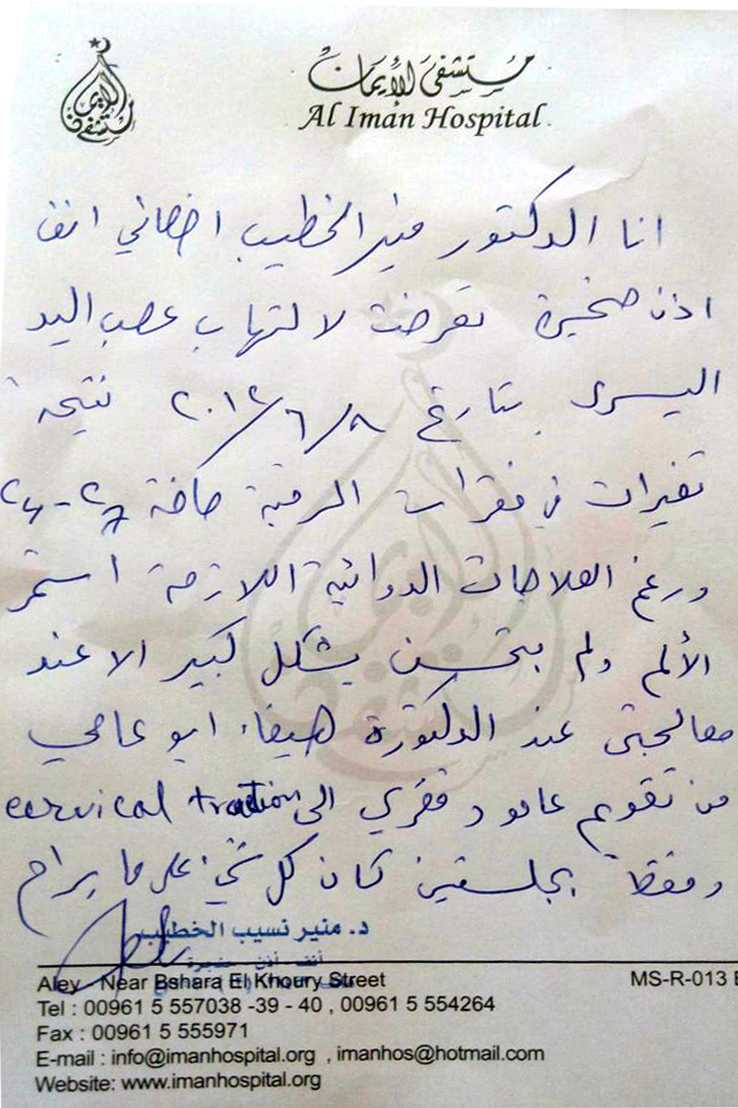 مستشفى الإيمان
مستشفى الإيمان
Al Iman Hospital
انا الدكتور منير الخطيب اخصائي انف
اذن حنجرة تعرضت لالتهاب عصب اليد
اليسرى بتاريخ ٢٠١٢/٦/٨ نتيجة
تغيرات في فقرات الرقبة خاصة
ورغم العلاجات الدوائية اللازمة استمر
الألم ولم يتحسن بشكل كبير الا عند
معالجتي عند الدكتورة هيفاء ابو عاصي
من تقويم عامود فقري الى cervical traction
وفقط بجلستين كان كل شيء على ما يرام
د. منير نسيب الخطيب
أنف - أذن - حنجرة
Aley - Near Bshara El Khoury Street
MS-R-013
Tel : 00961 5 557038 -39 - 40 , 00961 5 554264
Fax : 00961 5 555971
E-mail : info@imanhospital.org , imanhos@hotmail.com
Website: www.imanhospital.org